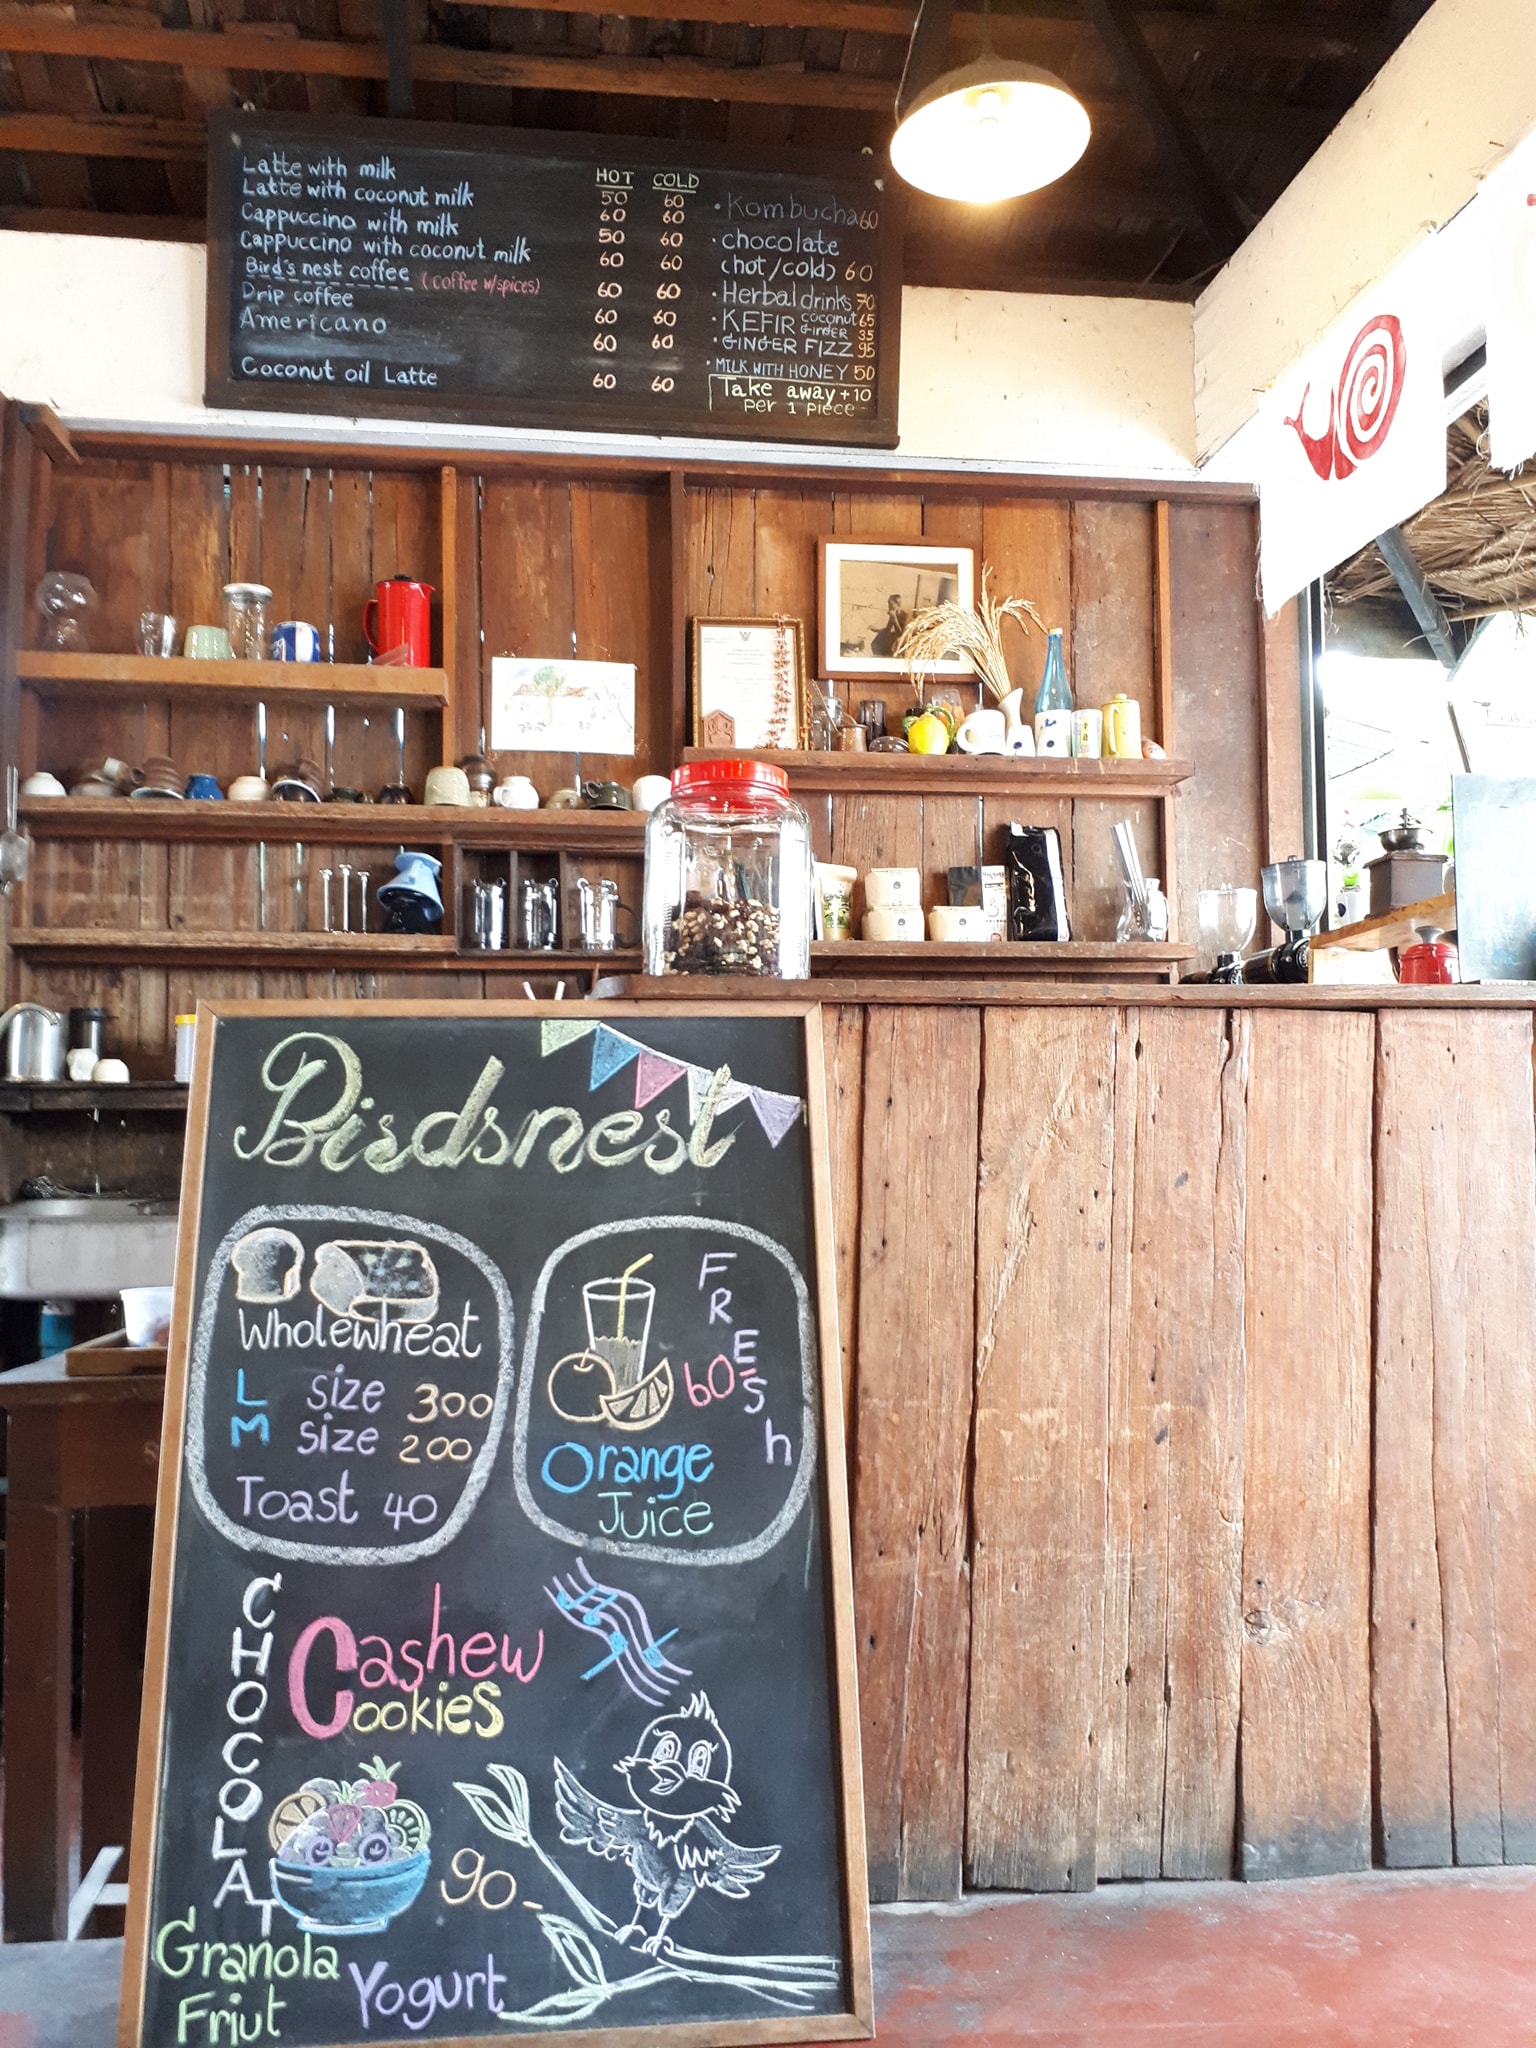 Latte with milk
Latte with coconut milk
Cappuccino with milk
Cappuccino with coconut milk
Bird's nest coffee (coffee w/spices)
Drip coffee
Americano
Coconut oil Latte
HOT COLD
50 60
60 60
50 60
60 60
60 60
60 60
60 60
60 60
• Kombucha 60
• chocolate
(hot/cold) 60
• Herbal drinks 70
• KEFIR coconut 65
GINGER 35
• GINGER FIZZ 95
• MILK WITH HONEY 50
Take away +10
per 1 piece
Birdsnest
Wholewheat
L size 300
M size 200
Toast 40
FRESh
60=
Orange
Juice
CHOCOLAT
Cashew
Cookies
90-
Granola
Friut
Yogurt